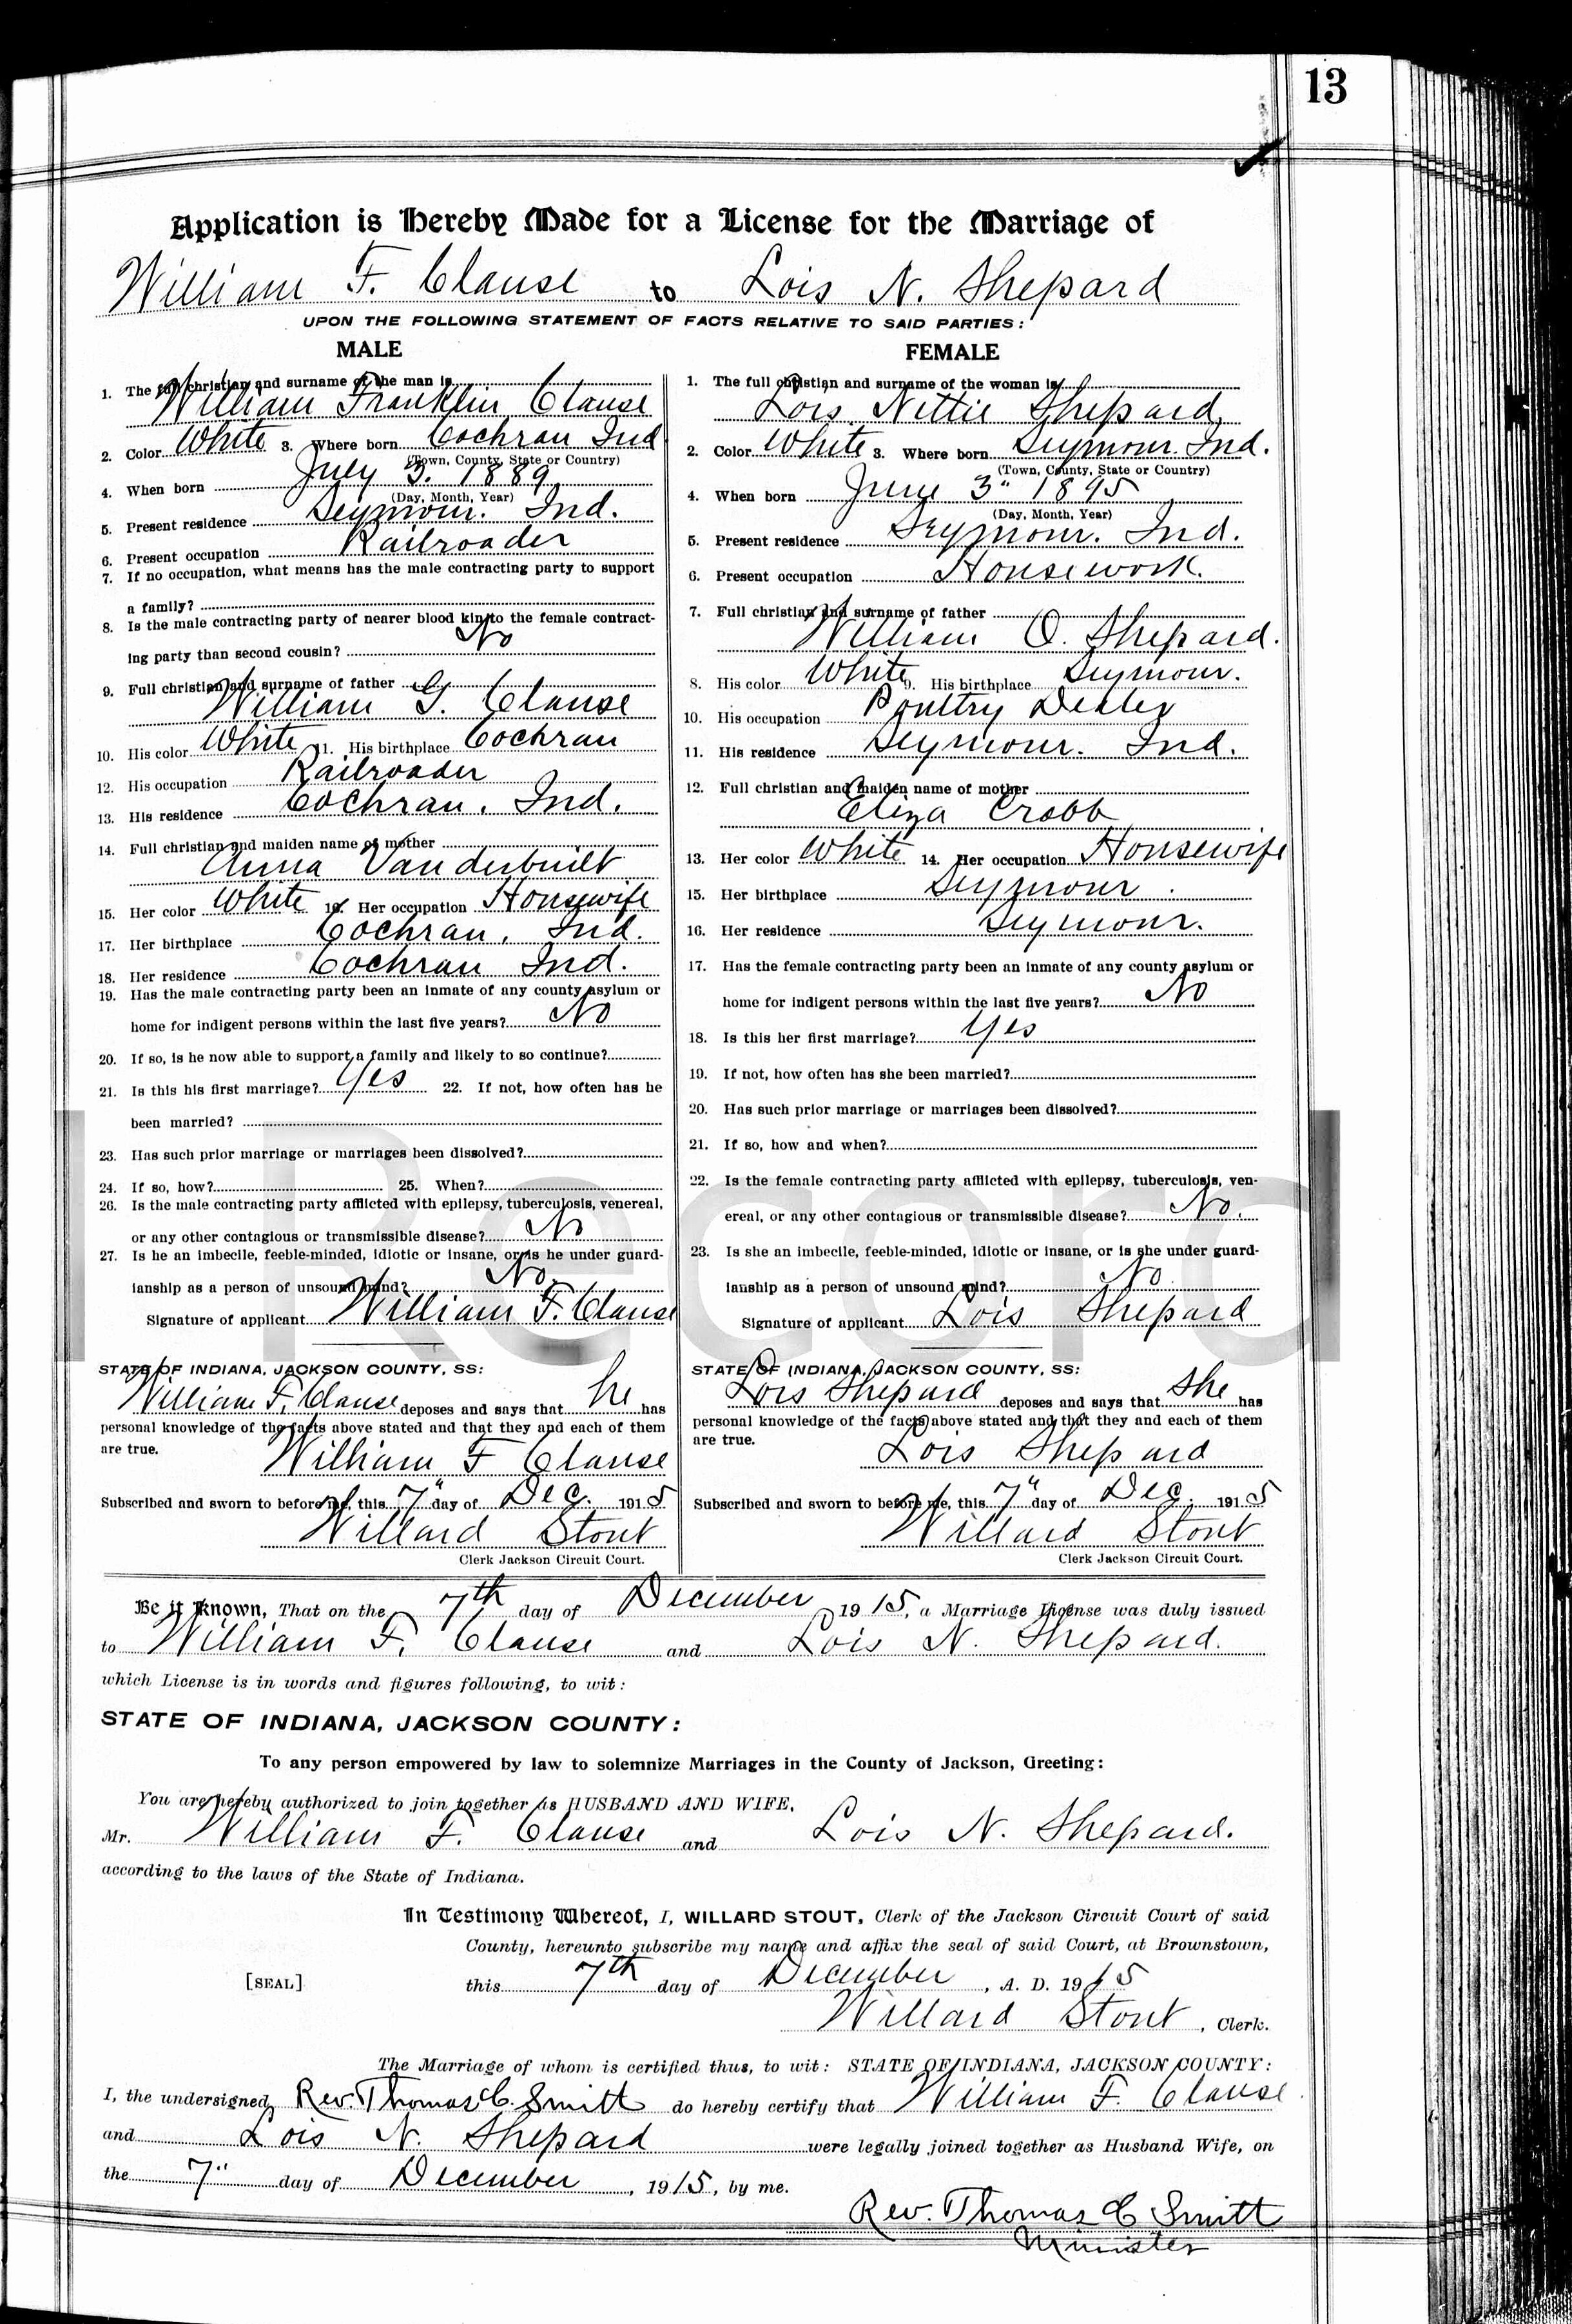 13
Application is Hereby Made for a License for the Marriage of
William F. Clause to Lois N. Shepard
UPON THE FOLLOWING STATEMENT OF FACTS RELATIVE TO SAID PARTIES:
MALE
1. The full christian and surname of the man is
William Franklin Clause
2. Color White 3. Where born Cochran Ind
(Town, County, State or Country)
4. When born July 3. 1889
(Day, Month, Year)
5. Present residence Seymour. Ind.
6. Present occupation Railroader
7. If no occupation, what means has the male contracting party to support
a family?
8. Is the male contracting party of nearer blood kin to the female contract-
ing party than second cousin? No
9. Full christian and surname of father
William G. Clause
10. His color White 11. His birthplace Cochran
12. His occupation Railroader
13. His residence Cochran, Ind.
14. Full christian and maiden name of mother
Anna Vanderbuilt
15. Her color White 16. Her occupation Housewife
17. Her birthplace Cochran, Ind.
18. Her residence Cochran Ind.
19. Has the male contracting party been an inmate of any county asylum or
home for indigent persons within the last five years? No
20. If so, is he now able to support a family and likely to so continue?
21. Is this his first marriage? Yes 22. If not, how often has he
been married?
23. Has such prior marriage or marriages been dissolved?
24. If so, how? 25. When?
26. Is the male contracting party afflicted with epilepsy, tuberculosis, venereal,
or any other contagious or transmissible disease? No
27. Is he an imbecile, feeble-minded, idiotic or insane, or is he under guard-
ianship as a person of unsound mind? No.
Signature of applicant William F. Clause
STATE OF INDIANA, JACKSON COUNTY, SS:
William F. Clause deposes and says that he has
personal knowledge of the facts above stated and that they and each of them
are true.
William F Clause
Subscribed and sworn to before me, this 7" day of Dec. 1915
Willard Stout
Clerk Jackson Circuit Court.
FEMALE
1. The full christian and surname of the woman is
Lois Nettie Shepard
2. Color White 3. Where born Seymour. Ind.
(Town, County, State or Country)
4. When born June 3" 1895
(Day, Month, Year)
5. Present residence Seymour. Ind.
6. Present occupation Housework.
7. Full christian and surname of father
William O. Shepard.
8. His color White 9. His birthplace Seymour.
10. His occupation Poultry Dealer
11. His residence Seymour. Ind.
12. Full christian and maiden name of mother
Eliza Crabb
13. Her color White 14. Her occupation Housewife
15. Her birthplace Seymour.
16. Her residence Seymour.
17. Has the female contracting party been an inmate of any county asylum or
home for indigent persons within the last five years? No
18. Is this her first marriage? Yes
19. If not, how often has she been married?
20. Has such prior marriage or marriages been dissolved?
21. If so, how and when?
22. Is the female contracting party afflicted with epilepsy, tuberculosis, ven-
ereal, or any other contagious or transmissible disease? No.
23. Is she an imbecile, feeble-minded, idiotic or insane, or is she under guard-
ianship as a person of unsound mind? No
Signature of applicant Lois Shepard
STATE OF INDIANA, JACKSON COUNTY, SS:
Lois Shepard deposes and says that she has
personal knowledge of the facts above stated and that they and each of them
are true.
Lois Shepard
Subscribed and sworn to before me, this 7" day of Dec. 1915
Willard Stout
Clerk Jackson Circuit Court.
Be it Known, That on the 7th day of December 1915, a Marriage License was duly issued
to William F. Clause and Lois N. Shepard.
which License is in words and figures following, to wit:
STATE OF INDIANA, JACKSON COUNTY:
To any person empowered by law to solemnize Marriages in the County of Jackson, Greeting:
You are hereby authorized to join together as HUSBAND AND WIFE,
Mr. William F. Clause and Lois N. Shepard.
according to the laws of the State of Indiana.
In Testimony Whereof, I, WILLARD STOUT, Clerk of the Jackson Circuit Court of said
County, hereunto subscribe my name and affix the seal of said Court, at Brownstown,
[SEAL] this 7th day of December, A. D. 1915
Willard Stout, Clerk.
The Marriage of whom is certified thus, to wit: STATE OF INDIANA, JACKSON COUNTY:
I, the undersigned, Rev. Thomas C. Smith do hereby certify that William F. Clause
and Lois N. Shepard were legally joined together as Husband Wife, on
the 7" day of December, 1915, by me.
Rev. Thomas C Smith
Minister
Record